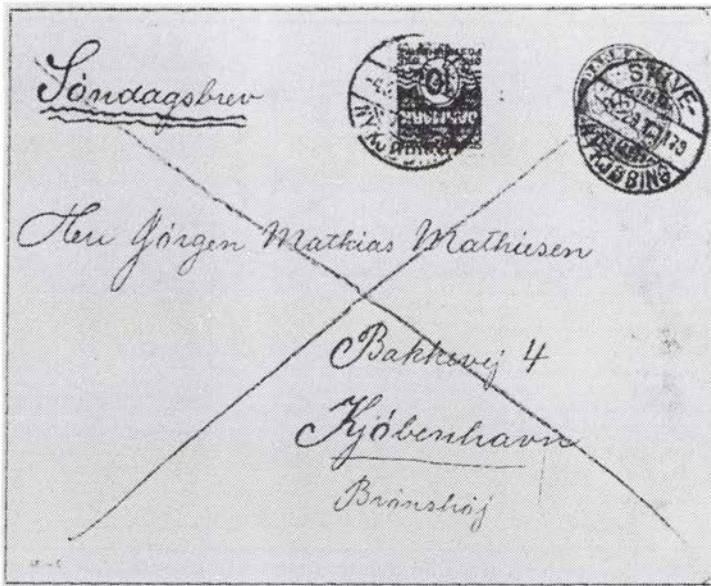 Söndagsbrev
10
DANMARK
SKIVE-
NYKJØBING
Herr Jörgen Mathias Mathiesen
Bakkevej 4
Kjöbenhavn
Brönshöj